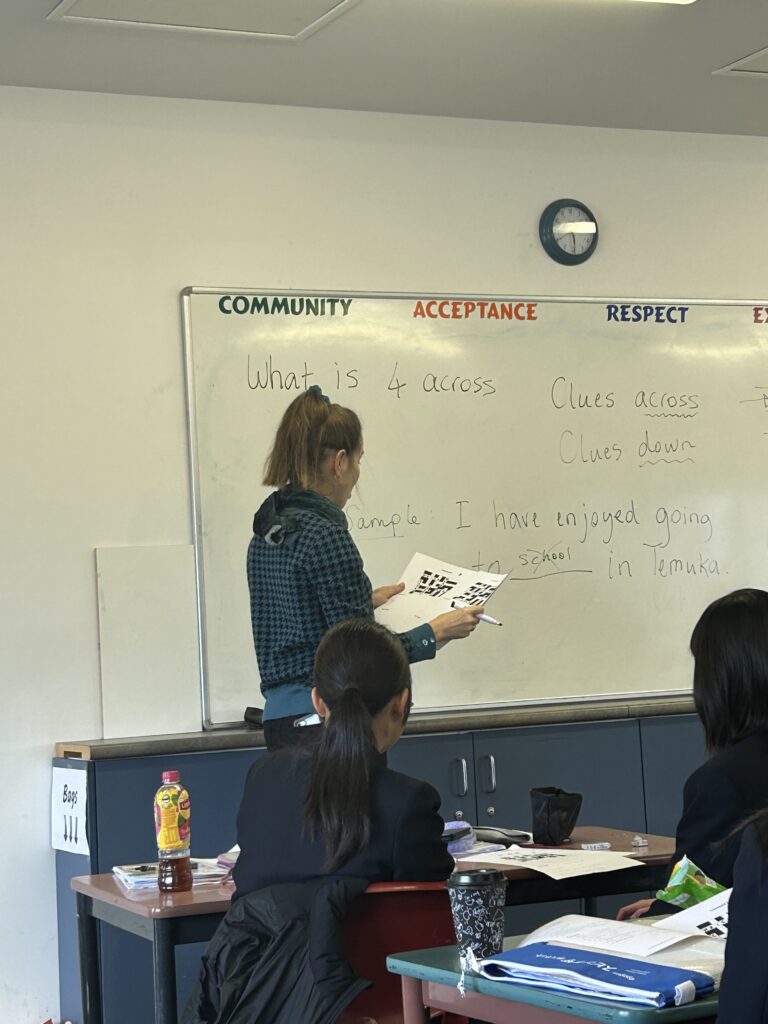 COMMUNITY ACCEPTANCE RESPECT
What is 4 across
Clues across
Clues down
Sample: I have enjoyed going
to school in Temuka.
Bags